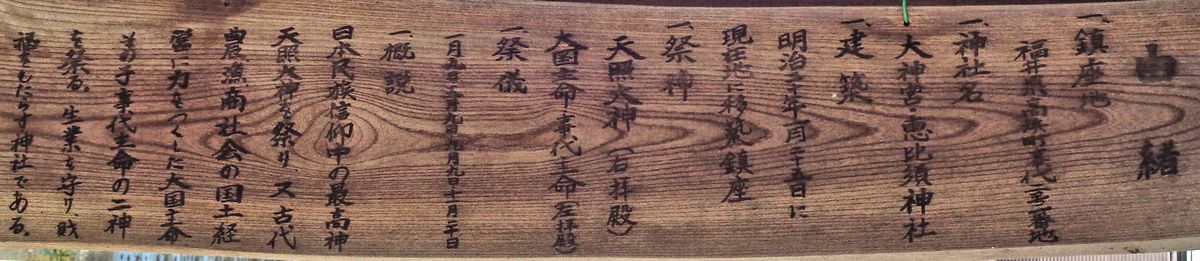 由緒
一、鎮座地
福井県高浜町事代
一、神社名
大神宮・恵比須神社
一、建築
明治三十年一月二十五日に
現在地に移築鎮座
一、祭神
天照大神(右拝殿)
大国主命・事代主命(左拝殿)
一、祭儀
一月
一、概説
日本民族信仰中の最高神
天照大神を祭り、又古代
農漁商社会の国土経
営に力をつくした大国主命
その子事代主命の二神
を祭る。生業を守り、財
福をもたらす神社である。